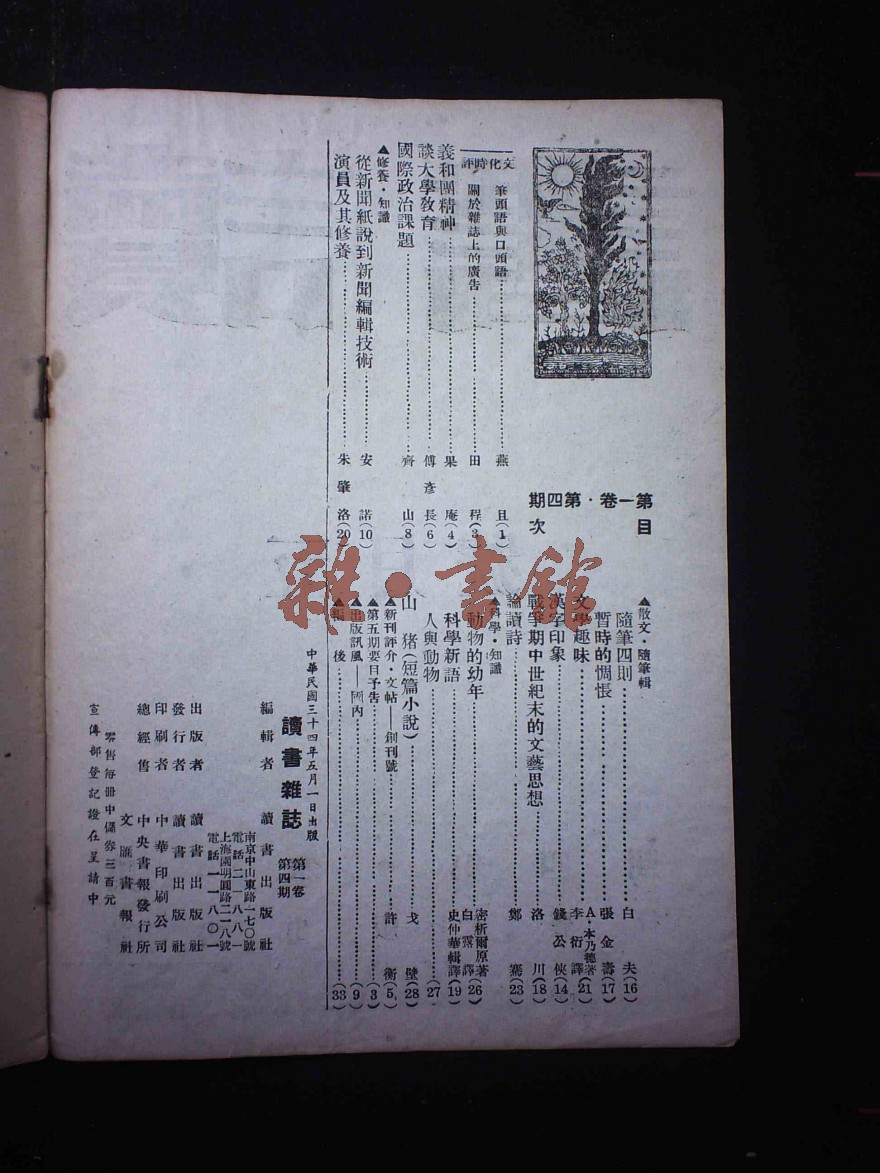 第一卷・第四期
目次
文化時評
筆頭語與口頭語……燕且(1)
關於雜誌上的廣告……田程(3)
義和團精神……果庵(4)
談大學教育……傅彥長(6)
國際政治課題……齊山(8)
▲修養・知識
從新聞紙說到新聞編輯技術……安諾(10)
演員及其修養……朱肇洛(20)
▲散文・隨筆輯
隨筆四則……白夫(16)
暫時的惆悵……張金壽(17)
文學趣味……A・本乃德著 李衍譯(21)
漢字印象……錢公俠(14)
戰爭期中世紀末的文藝思想……洛川(18)
論讀詩……鄭騫(23)
▲科學・知識
動物的幼年……密析爾原著 白露譯(26)
科學新語……史仲華輯譯(19)
人與動物……27
山猪(短篇小說)……戈壁(28)
▲新刊評介・文帖——創刊號……許衡(5)
▲第五期要目予告……(3)
▲出版訊風——國內……(9)
▲編後……(33)
中華民國三十四年五月一日出版
讀書雜誌 第一卷 第四期
編輯者 讀書出版社
南京中山東路一七〇號
電話二一八八一
上海圓明園路二一八號
電話一一八〇一
出版者 讀書出版社
發行者 讀書出版社
印刷者 中華印刷公司
總經售 中央書報發行所
文匯書報社
零售每册中儲券三百元
宣傳部登記證在呈請中
雜・書館